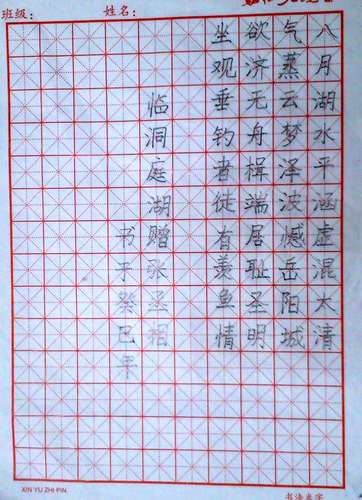 班级： 姓名：
八月湖水平涵虚混太清
气蒸云梦泽波憾岳阳城
欲济无舟楫端居耻圣明
坐观垂钓者徒有羡鱼情
临洞庭湖赠张丞相
书于癸巳年
XIN YU ZHI PIN